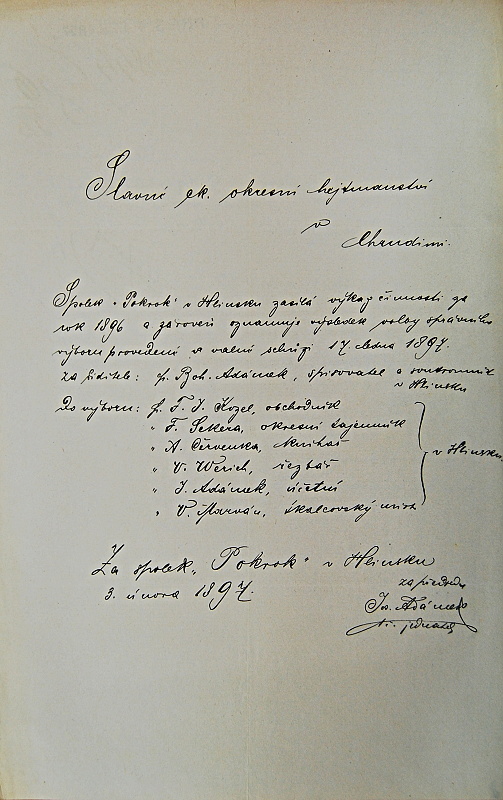 Slavné ck. okresní hejtmanství
v
Chrudimi.
Spolek „Pokrok“ v Hlinsku zasílá výkaz činnosti za
rok 1896 a zároveň oznamuje výsledek volby správního
výboru provedené ve valné schůzi 17 ledna 1897.
Za ředitele: p. Boh. Adámek, spisovatel a soukromník
v Hlinsku
Do výboru: p. F. J. Kozel, obchodník
" F. Sekera, okresní tajemník
" A. Červenka, knihař
" V. Werich, řezbář
" J. Adámek, účetní
" V. Marván, škalcovský mistr
v Hlinsku
Za spolek „Pokrok“ v Hlinsku
3. února 1897.
za předsedu
Jos. Adámek
t. č. jednatel